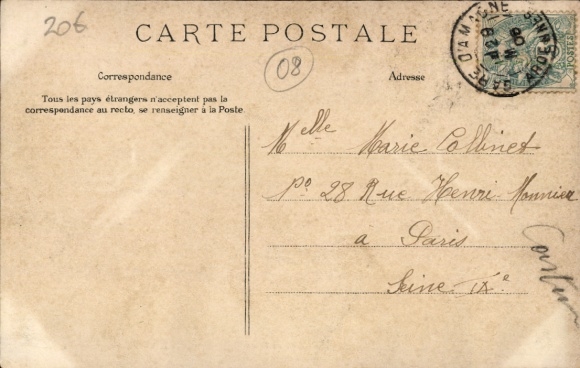 206
CARTE POSTALE
08
Correspondance
Adresse
Tous les pays étrangers n'acceptent pas la
correspondance au recto, se renseigner à la Poste
GARE D'AMAGNE ARDENNES
POSTES
Melle Marie Collinet
No 28 Rue Henri Monnier
a Paris
Seine IXe